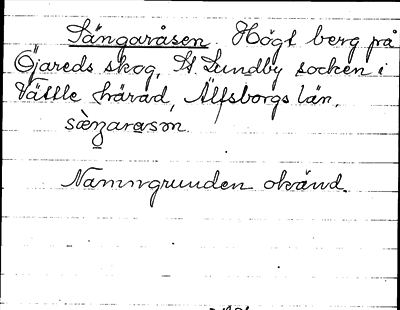 Sängaråsen Högt berg på
Öjareds skog, St. Lundby socken i
Vättle härad, Älfsborgs län.
Namngrunden okänd.